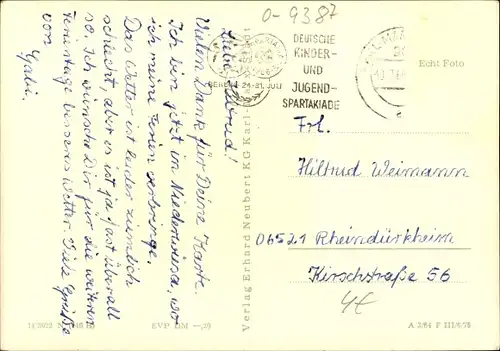 Liebe Hiltrud!
Vielen Dank für Deine Karte.
Ich bin jetzt in Niederwiesa, wo
ich meine Ferien verbringe.
Das Wetter ist leider ziemlich
schlecht, aber es ist ja fast überall
so. Ich wünsche Dir für die weiteren
Ferientage besseres Wetter. Viele Grüße
von Gabi.
Verlag Erhard Neubert KG Karl-
0-9387
DEUTSCHE
KINDER-
UND
JUGEND-
SPARTAKIADE
BERLIN 24.-31. JULI
Echt Foto
Frl.
Hiltrud Weimann
06521 Rheindürkheim
Kirschstraße 56
4€
EVP DM -,20
A 2/64 F III/6/75